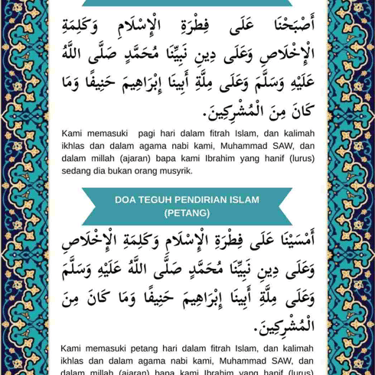 أَصْبَحْنَا عَلَى فِطْرَةِ الْإِسْلَامِ وَكَلِمَةِ
الْإِخْلَاصِ وَعَلَى دِينِ نَبِيِّنَا مُحَمَّدٍ صَلَّى اللَّهُ
عَلَيْهِ وَسَلَّمَ وَعَلَى مِلَّةِ أَبِينَا إِبْرَاهِيمَ حَنِيفًا وَمَا
كَانَ مِنَ الْمُشْرِكِينَ.
Kami memasuki pagi hari dalam fitrah Islam, dan kalimah
ikhlas dan dalam agama nabi kami, Muhammad SAW, dan
dalam millah (ajaran) bapa kami Ibrahim yang hanif (lurus)
sedang dia bukan orang musyrik.
DOA TEGUH PENDIRIAN ISLAM
(PETANG)
أَمْسَيْنَا عَلَى فِطْرَةِ الْإِسْلَامِ وَكَلِمَةِ الْإِخْلَاصِ
وَعَلَى دِينِ نَبِيِّنَا مُحَمَّدٍ صَلَّى اللَّهُ عَلَيْهِ وَسَلَّمَ
وَعَلَى مِلَّةِ أَبِينَا إِبْرَاهِيمَ حَنِيفًا وَمَا كَانَ مِنَ
الْمُشْرِكِينَ.
Kami memasuki petang hari dalam fitrah Islam, dan kalimah
ikhlas dan dalam agama nabi kami, Muhammad SAW, dan
dalam millah (ajaran) bapa kami Ibrahim yang hanif (lurus)